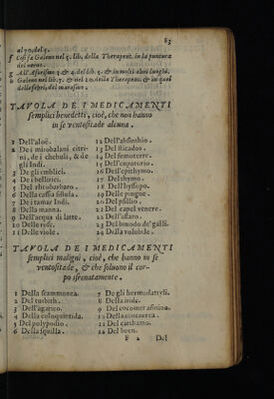 83
al 70. del 5.
f Cosi fa Galeno nel 5. lib. della Therapeut. in la puntura
del neruo.
g All' Aforismo 3. & 4. del lib. 3. & in molti altri luoghi.
h Galeno nel 6. & 7. & nel 10. della Therapeut. & in quel
della febri, del marasmo.
TAVOLA DE I MEDICAMENTI
semplici benedetti, cioè, che non hanno
in se ventositade alcuna.
1 Dell'aloè.
2 De i mirobalani citri-
ni, de i chebuli, & de
gli Indi.
3 De gli emblici.
4 De i bellerici.
5 Del rheubarbaro.
6 Della cassia fistula.
7 De i tamar Indi.
8 Della manna.
9 Dell'acqua di latte.
10 Delle rose.
11 Delle viole.
12 Dell'absinthio.
13 Del sticados.
14 Del fumoterre.
15 Dell'eupatorio.
16 Dell'epithymo.
17 Del thymo.
18 Dell'hyssopo.
19 Delle prugne.
20 Del psillio.
21 Del capel venere.
22 Dell'asaro.
23 Del brodo de' galli.
24 Della volubile.
TAVOLA DE I MEDICAMENTI
semplici maligni, cioè, che hanno in se
ventositade, & che soluono il cor-
po sfrenatamente.
1 Della scammonea.
2 Del turbith.
3 Dell'agarico.
4 Della coloquintida.
5 Del polypodio.
6 Della squilla.
7 De gli hermodattyli.
8 Della
9 Del cocomer asinino.
10 Della
11 Del carthamo.
12 Del been.
F 2 Del